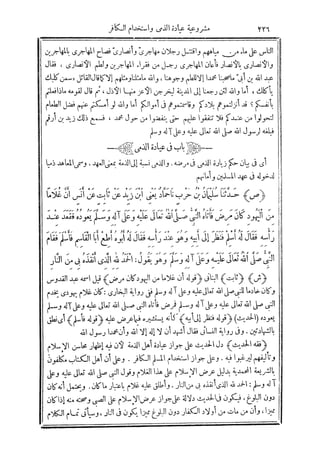 ٢٣٦ مشروعية عيادة الذمى واستخدام الكافر
الناس على ماء من مياههم واقتتل رجلان مهاجرى وأنصارى فصاح المهاجرى بالمهاجرين
والأنصارى بالأنصار فأعان المهاجرى رجل من فقراء المهاجرين ولطم الأنصارى، فقال
عبد الله بن أبىّ ما صحبنا محمدا إلا لتلطم وجوهنا، والله ما مثلنا ومثلهم إلا كما قال القائل سمن كلبك
يأكلك، أما والله لئن رجعنا إلى المدينة ليخرجن الأعز منها الأذل، ثم قال لقومه ماذا فعلتم
بأنفسكم؟ قد أنزلتموهم بلادكم وقاسمتموهم فى أموالكم أما والله لو أمسكتم عنهم فضل الطعام
لتحولوا من عندكم فلا تنفقوا عليهم حتى ينفضوا من حول محمد، فسمع ذلك زيد بن أرقم
فبلغه لرسول الله صلى الله تعالى عليه وعلى آله وسلم
باب فى عيادة الذمى
أى فى بيان حكم زيارة الذمى فى مرضه. والذمى نسبة إلى الذمة بمعنى العهد. وسمى المعاهد ذميا
لدخوله فى عهد المسلمين وأمانهم
(ص) حَدَّثَنَا سُلَيْمَانُ بْنُ حَرْبٍ نَا حَمَّادٌ يَعْنِى ابْنَ زَيْدٍ عَنْ ثَابِتٍ عَنْ أَنَسٍ أَنَّ غُلَامًا
مِنَ الْيَهُودِ كَانَ مَرِضَ فَأَتَاهُ النَّبِىُّ صَلَّى اللهُ تَعَالَى عَلَيْهِ وَعَلَى آلِهِ وَسَلَّمَ يَعُودُهُ فَقَعَدَ عِنْدَ
رَأْسِهِ فَقَالَ لَهُ أَسْلِمْ فَنَظَرَ إِلَى أَبِيهِ وَهُوَ عِنْدَ رَأْسِهِ فَقَالَ لَهُ أَبُوهُ أَطِعْ أَبَا الْقَاسِمِ فَأَسْلَمَ فَقَامَ
النَّبِىُّ صَلَّى اللهُ تَعَالَى عَلَيْهِ وَعَلَى آلِهِ وَسَلَّمَ وَهُوَ يَقُولُ: الْحَمْدُ لِلهِ الَّذِى أَنْقَذَهُ بِى مِنَ النَّارِ
(ش) (ثابت) البنانى (قوله أن غلاما من اليهود كان مرض) قيل اسمه عبد القدوس
وكان خادما للنبى صلى الله تعالى عليه وعلى آله وسلم ففى رواية البخارى: كان غلام يهودى يخدم
النبى صلى الله تعالى عليه وعلى آله وسلم فمرض فأتاه النبى صلى الله تعالى عليه وعلى آله وسلم
يعوده (الحديث) (قوله فنظر إلى أبيه) كأنه يستشيره فيما عرض عليه (قوله فأسلم) أى نطق
بالشهادتين. وفى رواية النسائى فقال أشهد أن لا إله إلا الله وأن محمدا رسول الله
(فقه الحديث) دل الحديث على جواز عيادة أهل الذمة لأن فيه إظهار محاسن الإسلام
وتأليفهم ليرغبوا فيه. وعلى جواز استخدام المسلم الكافر. وعلى أن أهل الكتاب مكلفون
بالشريعة المحمدية بدليل عرض الإسلام على هذا الغلام وقول النبى صلى الله تعالى عليه وعلى
آله وسلم: الحمد لله الذى أنقذه بى من النار. وأطلق عليه غلام باعتبار ما كان. ويحتمل أنه كان
دون البلوغ، فيكون فى الحديث دلالة على جواز عرض الإسلام على الصبى وصحته منه إذا كان
مميزا، وأن من مات من أولاد الكفار دون البلوغ مميزا يكون فى النار. وسيأتى تمام الكلام